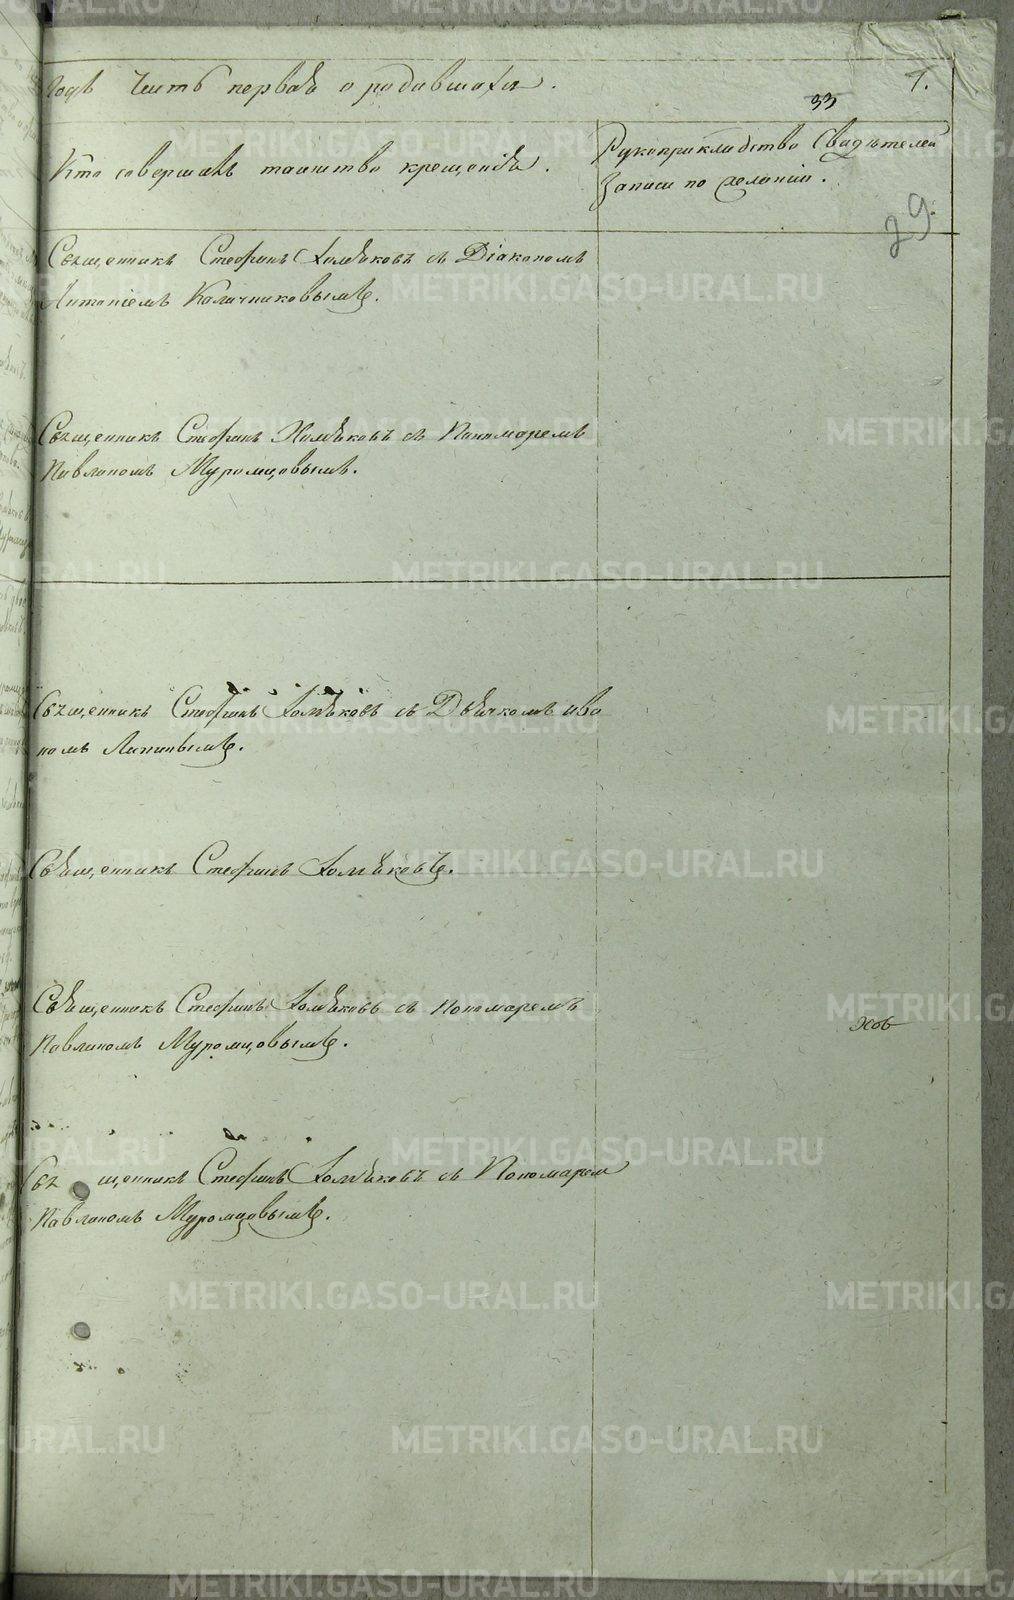 годъ Часть первая о родившихся.
1.
33
Кто совершилъ таинство крещенія.
Рукоприкладство Свидѣтелей
записи по желанію.
29.
Священникъ Стефанъ Хомяковъ съ Діакономъ
Антоніемъ Калачниковымъ.
Священникъ Стефанъ Хомяковъ съ Пономаремъ
Павлиномъ Муромцовымъ.
Священникъ Стефанъ Хомяковъ съ Дьячкомъ Ива
номъ
Священникъ Стефанъ Хомяковъ.
Священникъ Стефанъ Хомяковъ съ пономаремъ
Павлиномъ Муромцовымъ.
Священникъ Стефанъ Хомяковъ съ Пономарем
Павлиномъ Муромцовымъ.
METRIKI.GASO-URAL.RU